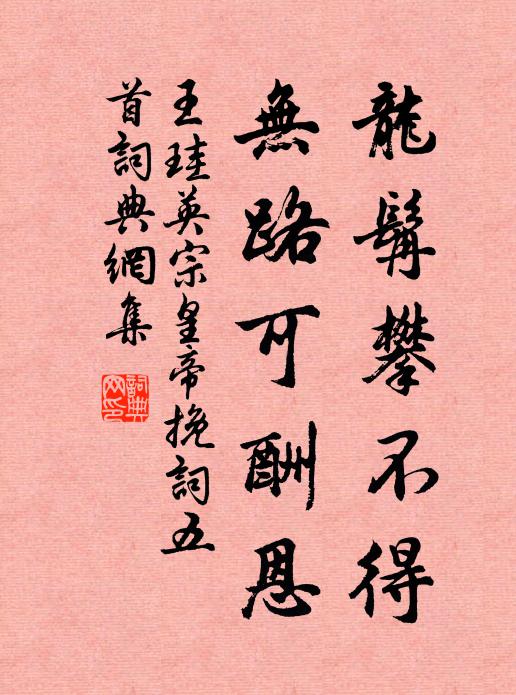 龍髯攀不得
無路可酬恩
王珪英宗皇帝挽詞五
首詞典網集
詞典網印